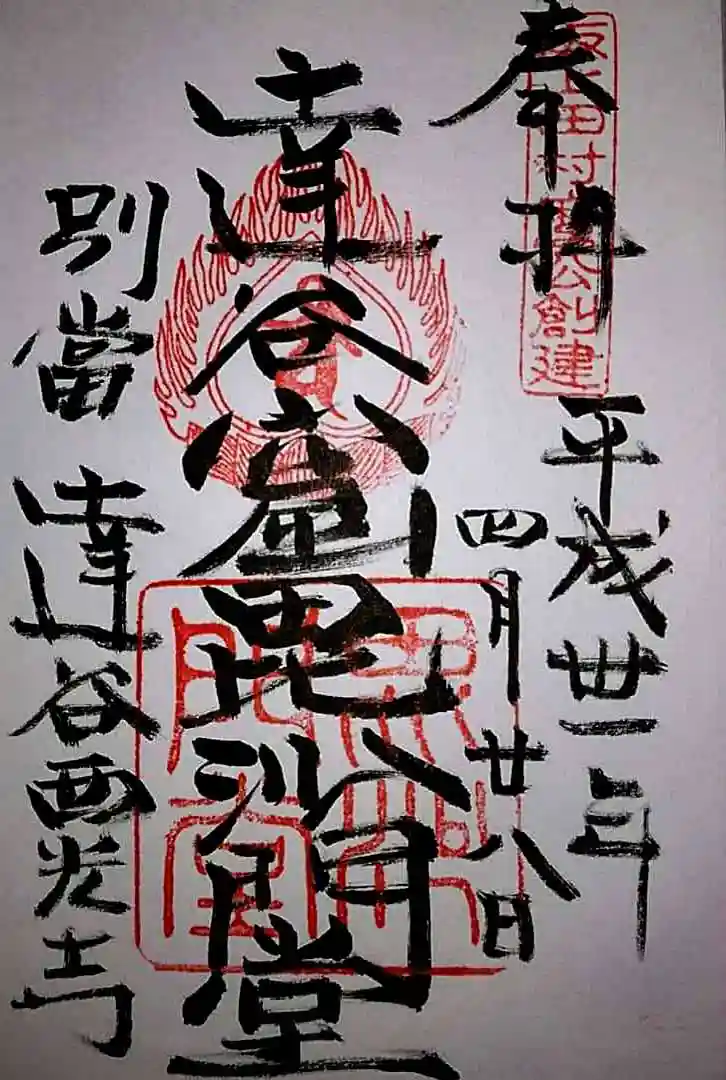 坂上田村麿公創建
奉拝
平成丗一年
四月廿八日
達谷窟毘沙門堂
別當 達谷西光寺